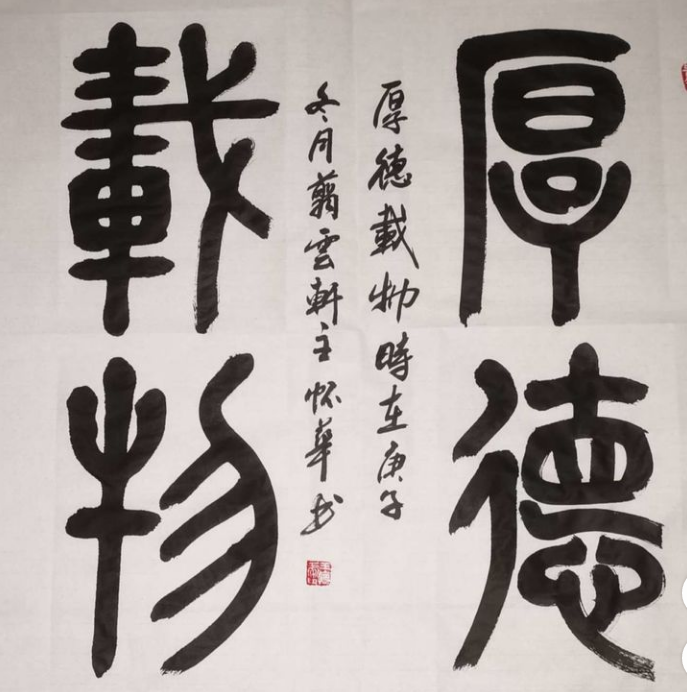 厚德
載物
厚德載物時在庚子
冬月翦雲軒主懷華书